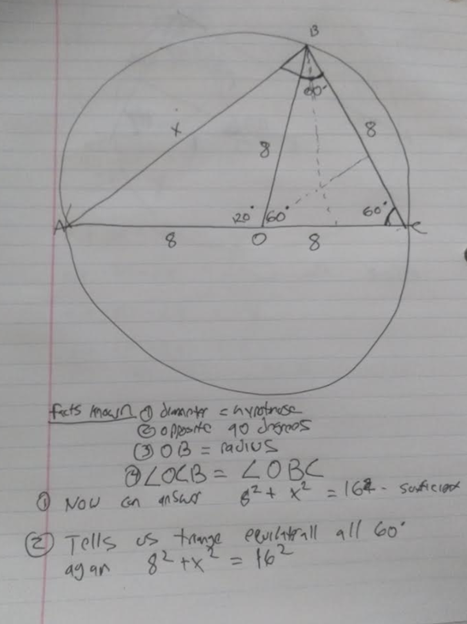 B
60°
x
8
8
A
20°
60°
60°
C
8
O
8
Facts known ① diamter = hypotnose
② opposite 90 degrees
③ OB = radius
④ ∠OCB = ∠OBC
① Now can answer 8² + x² = 16² - sufficient
② Tells us triange equilaterall all 60°
agan 8² + x² = 16²